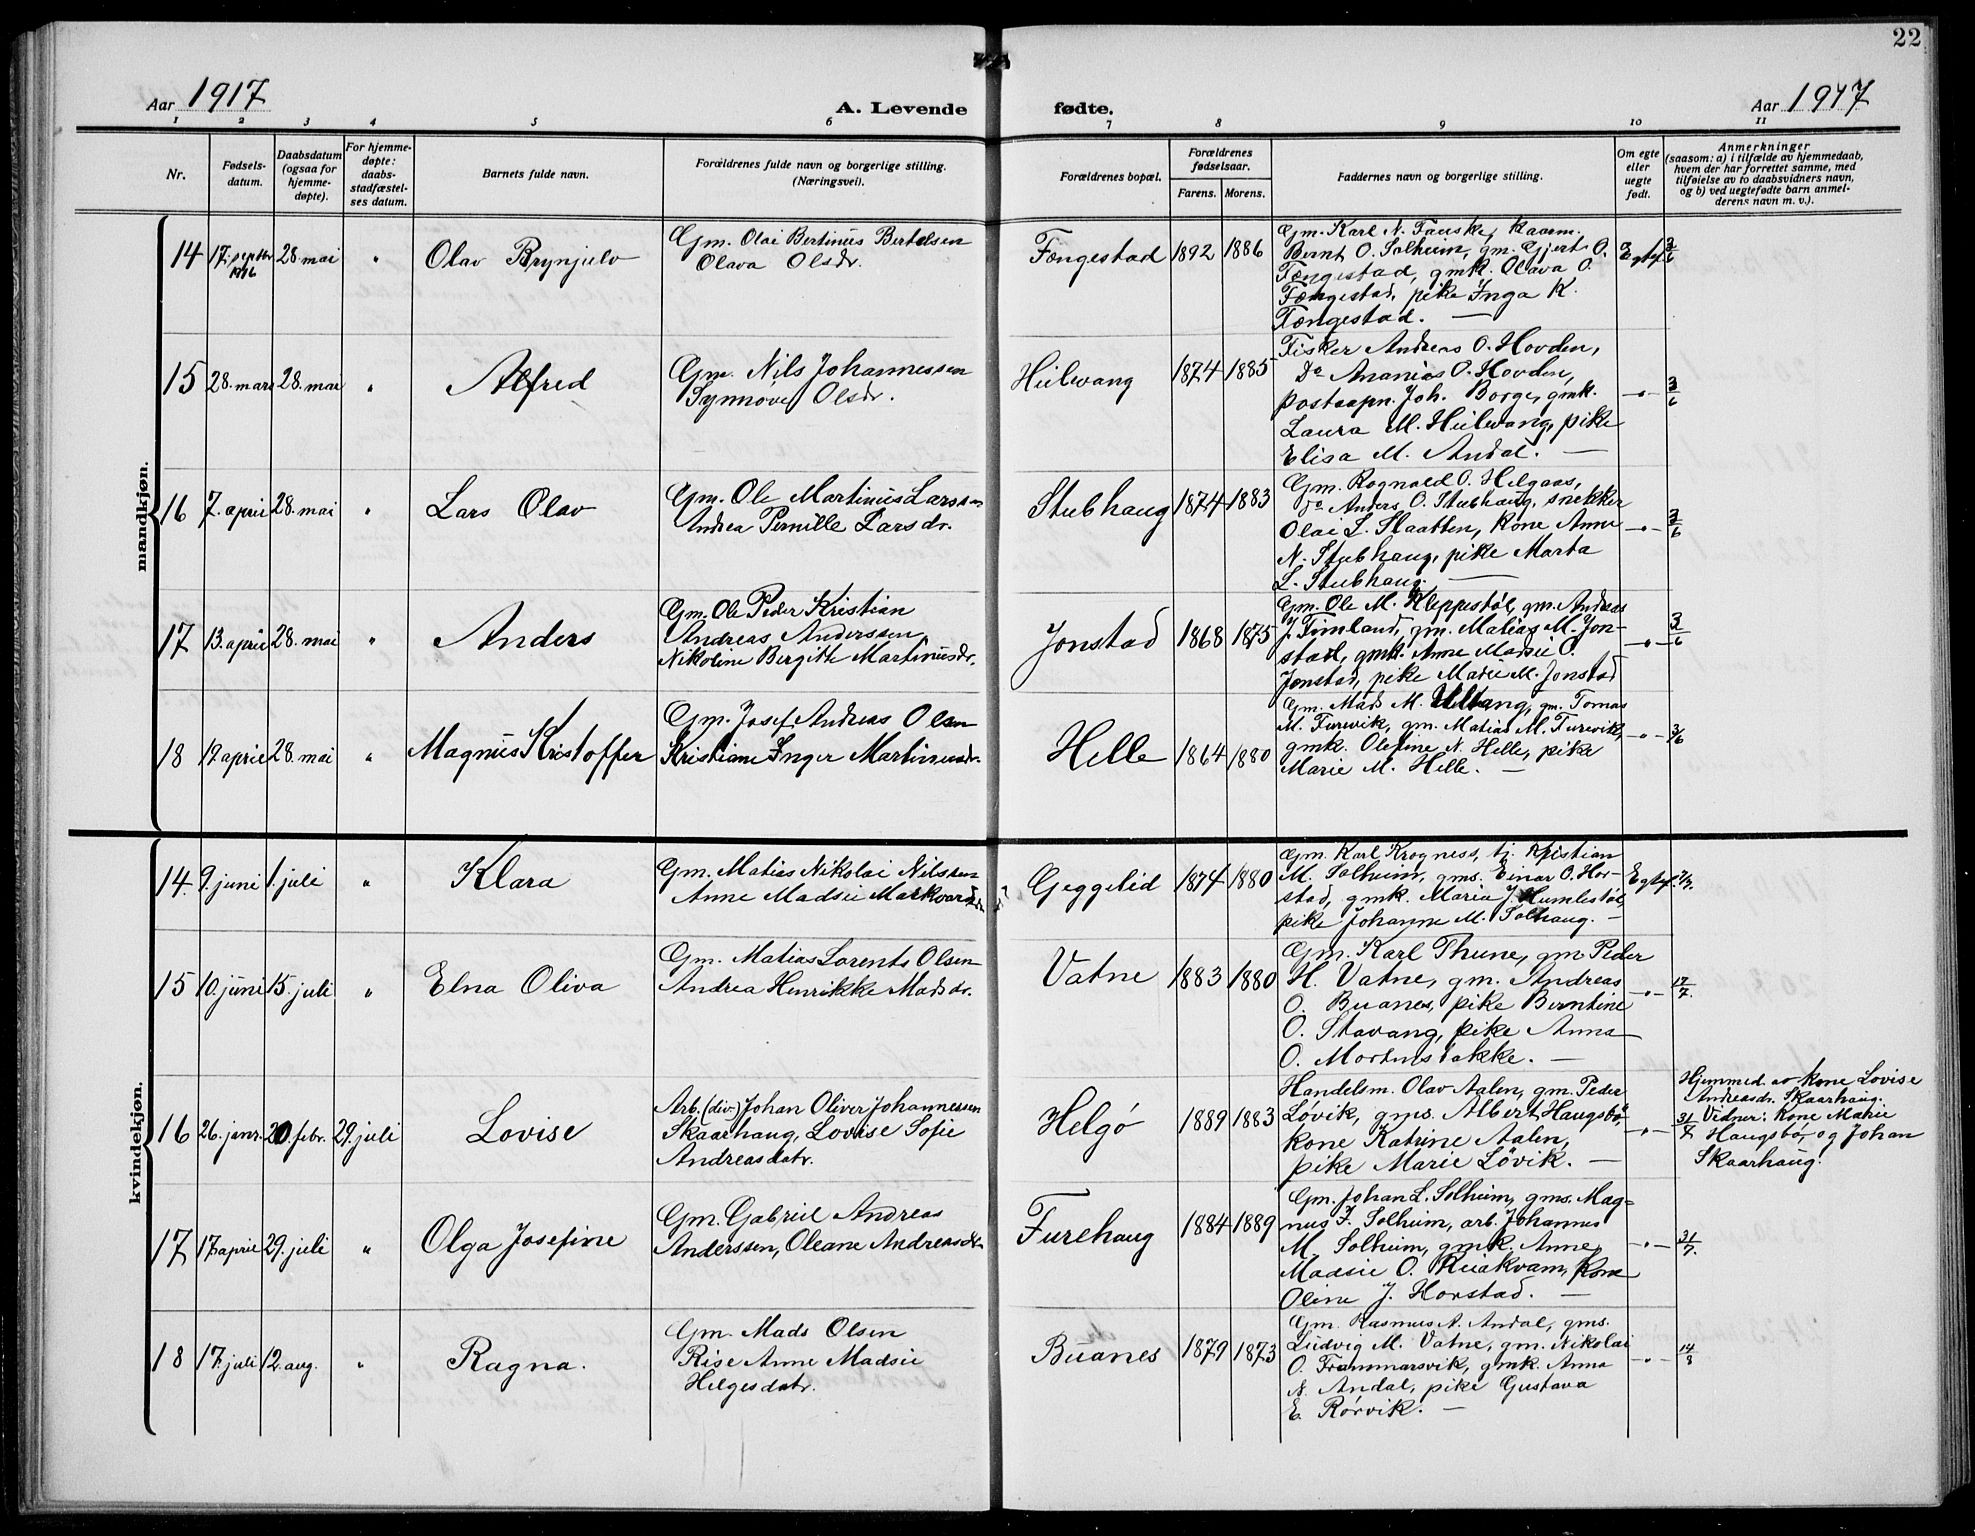 22
Aar 1917
A. Levende fødte.
Aar 1917
1 2 3 4 5 6 7 8 9 10 11
Nr.
Fødsels-
datum.
Daabsdatum
(ogsaa for
hjemme-
døpte).
For hjemme-
døpte:
daabs-
stadfæstel-
ses datum.
Barnets fulde navn.
Forældrenes fulde navn og borgerlige stilling.
(Næringsvei).
Forældrenes bopæl.
Forældrenes
fødselsaar.
Farens. Morens.
Faddernes navn og borgerlige stilling.
Om egte
eller
uegte
født.
Anmerkninger
(saasom: a) i tilfælde av hjemmedaab,
hvem der har forrettet samme, med
tilføielse av to daabsvidners navn,
og b) ved uegtefødte barn anmel-
derens navn m. v.).
mandkjøn.
14 17. septbr 1916 28 mai " Olav Brynjulv
Gm. Olai Bertinus Bertelsen
Olava Olsdr.
Fængestad 1892 1886
Gm. Karl N. Fauske, Kaarm.
Bernt O. Solheim, gm. Gjert O.
Fængestad, gmk. Olava O.
Fængestad, pike Inga K.
Fængestad. —
Egtef. 3/6
15 28. mars 28. mai " Alfred
Gm. Nils Johannessen
Synnøve Olsdr.
Hüilevang 1874 1885
Fisker Andreas O. Hovden,
Do Ananias O. Hovden,
postaapn. Joh. Borge, gmk.
Laura M. Huilevang, pike
Elisa M. Andal. —
—"— 3/6
16 7. april 28. mai " Lars Olav
Gm. Ole Martinus Larssen
Andrea Pernille Larsdr.
Stubhaug 1874 1883
Gm. Rognald O. Helgaas,
Do Anders O. Stubhaug, snekker
Olai L. Slaatten, Kone Anne
N. Stubhaug, pike Marta
L. Stubhaug. —
—"— 3/6
17 13. april 28. mai " Anders
Gm. Ole Peder Kristian
Andreas Anderssen,
Nikoline Bergitte Martinusdr.
Jonstad 1868 1875
Gm. Ole M. Kleppestøl, gm. Andreas
J. Timland, gm. Matias M. Jon-
stad, gmk. Anne Madsie O.
Jonstad, pike Marie M. Jonstad
—"— 3/6
18 19 april 28. mai " Magnus Kristoffer
Gm. Josef Andreas Olsen
Kristiane Inger Martinusdr.
Helle 1864 1880
Gm. Mads M. Ueltang, gm. Tomas
M. Furevik, gm. Matias M. Furevik,
gmk. Olefine N. Helle, pike
Marie M. Helle. —
—"— 3/6
kvindekjøn.
14. 9. juni 1. juli " Klara
Gm. Matias Nikolai Nilssen
Anne Madsie Markvardsdr.
Geggelid 1874 1880
Gm. Karl Krogness, tj. Kristian
M. Solheim, gms. Einar O. Hor-
stad, gmk. Marie J. Humlestøl,
pike Johanne M. Solhaug. —
Egtef. 2/7.
15 10. juni 15. juli " Elna Oliva
Gm. Matias Lorents Olsen
Andrea Henrikke Madsdr.
Vatne 1883 1880
Gm. Karl Thune, gm. Peder
H. Vatne, gm. Andreas
O. Buanes, pike Berntine
O. Stavang, pike Anna
O. Mortensbakke. —
—"— 17/7.
16 26. janr. 20. febr. 29. juli Lovise
Arb. (div.) Johan Oliver Johannessen
Skaarhaug, Lovise Sofie
Andreasdatr.
Helgø 1889 1883
Handelsm. Olav Aalen, gm. Peder
Løvik, gms. Albert Haugsbø,
kone Katrine Aalen,
pike Marie Løvik. —
—"— 31/7
Hjemmed. av kone Lovise
Andreasdr. Skaarhaug.
Vidner: Kone Marie
Haugsbø, og Johan
Skaarhaug.
17 17. april 29. juli " Olga Josefine
Gm. Gabriel Andreas
Anderssen, Oleane Andreasdtr
Furehaug 1884 1889
Gm. Johan L. Solheim, gms. Mag-
nus J. Solheim, arb. Johannes
M. Solheim, gmk. Anne
Madsie O. Kviakvam, kone
Oline J. Horstad. —
—"— 31/7.
18 17. juli 12. aug. " Ragna.
Gm. Mads Olsen
Rise Anne Madsie
Helgesdatr.
Buanes 1879 1873
Gm. Rasmus A. Andal, gms.
Ludvig M. Vatne, gm. Nikolai
O. Frammarsvik, gmk. Anna
N. Andal, pike Gustava
E. Rørvik. —
—"— 14/8